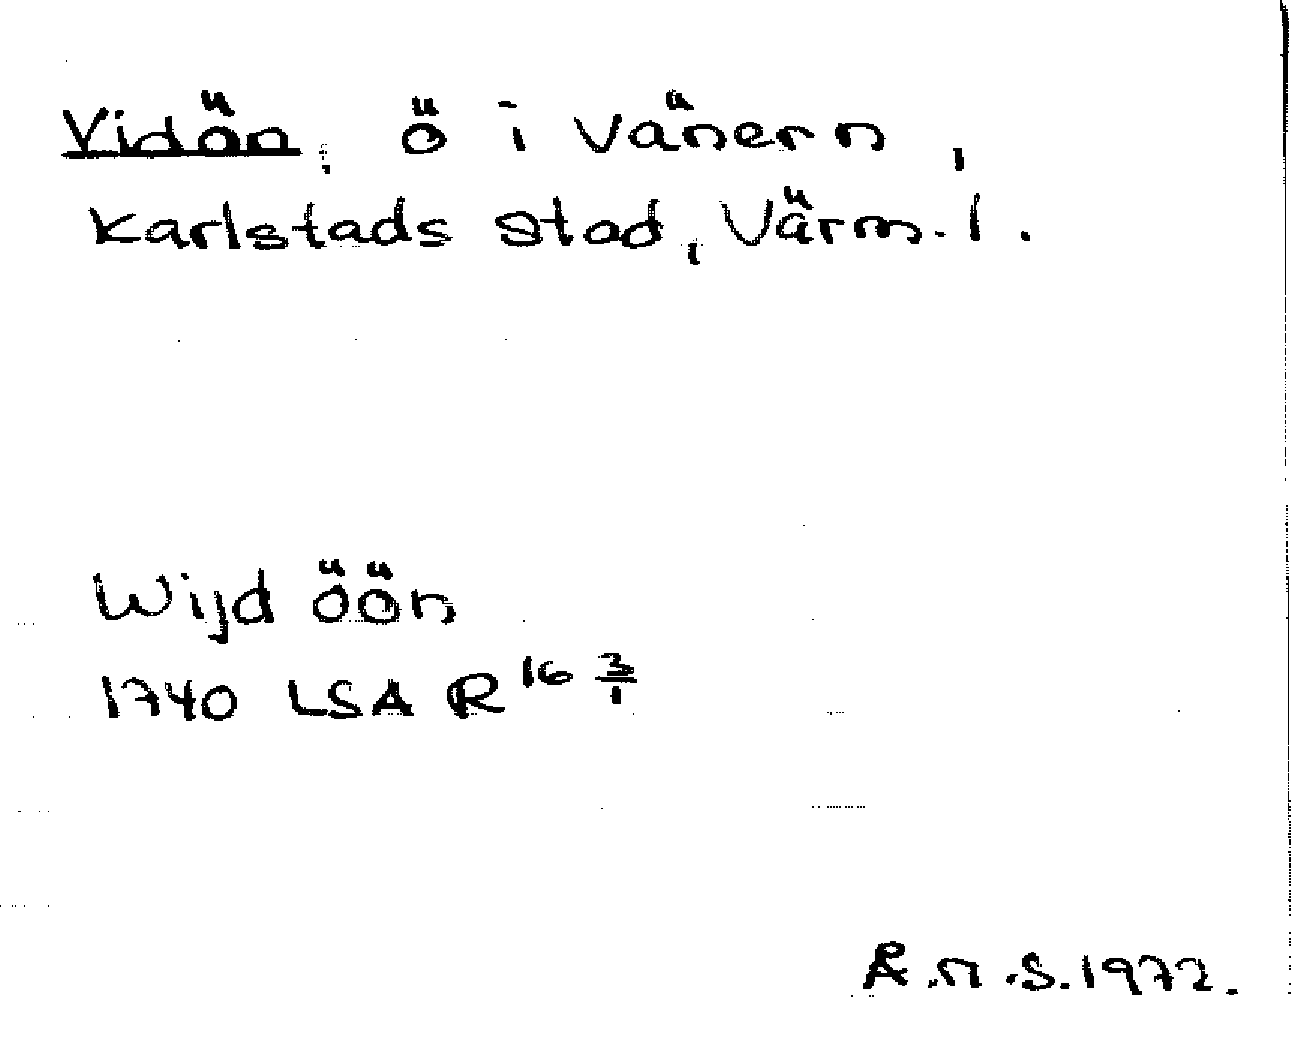 Vidön, ö i Vänern,
Karlstads stad, Värm. l.
Wijd öön
1740 LSA R 16 3/1
Å.M.S.1972.